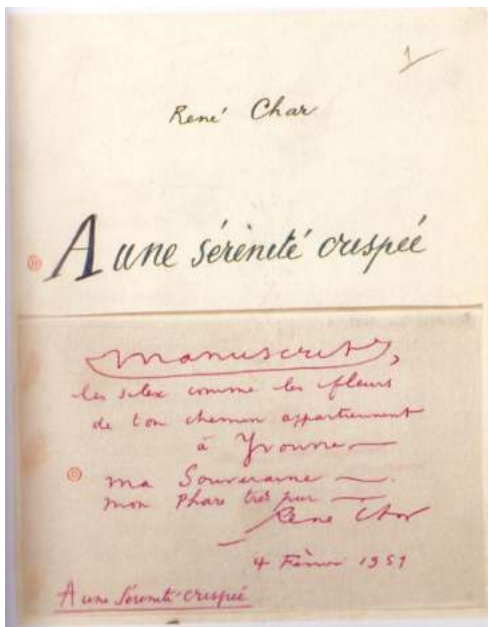 1
René Char
A une sérénité crispée
manuscrit,
les silex comme les fleurs
de ton chemin appartiennent
à Yvonne
ma Souveraine
mon Phare très pur
René Char
4 Février 1951
A une Sérénité crispée